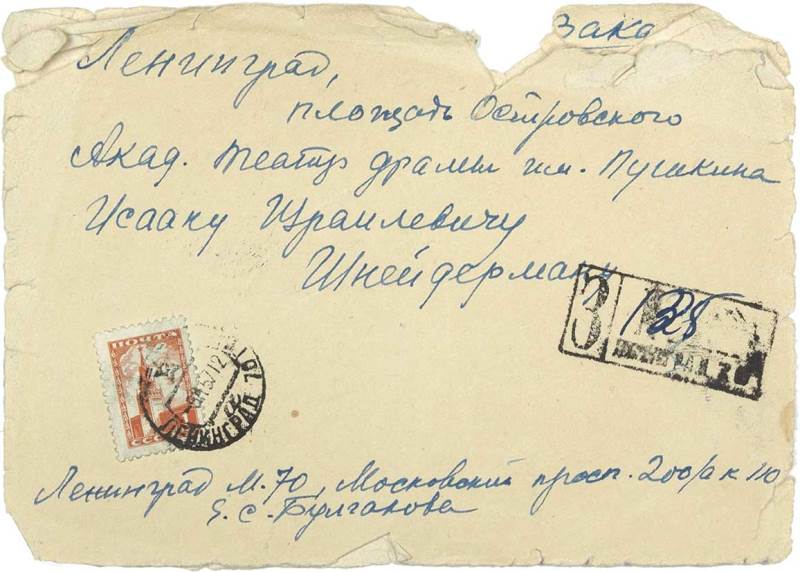 Зака
Ленинград,
площадь Островского
Акад. театр драмы им. Пушкина
Исааку Израилевичу
Шнейдерману
З
ПОЧТА
СССР
ЛЕНИНГРАД
Ленинград М-70, Московский просп. 200/а к 110
Е. С. Булгакова